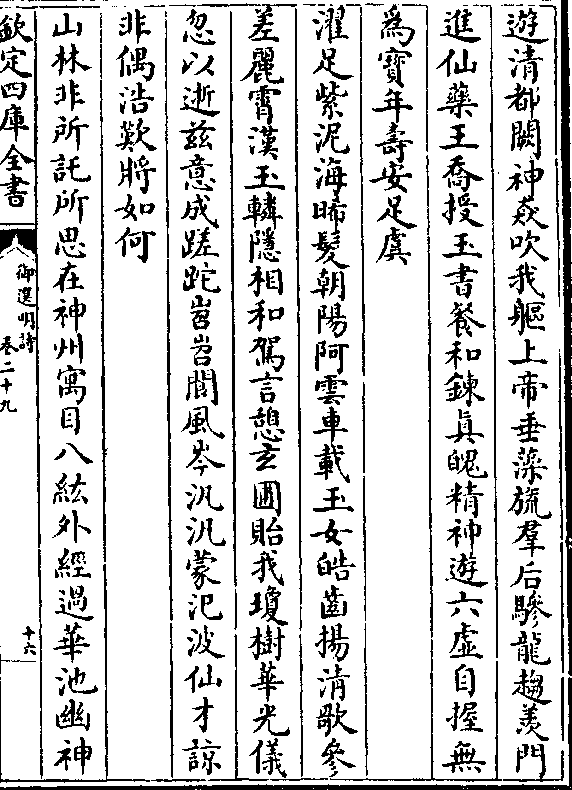 遊清都闕神焱吹我軀上帝垂藻旒羣后驂龍趨羨門
進仙藥王喬授玉書餐和鍊真魄精神遊六虛自握無
爲寶年壽安足虞
濯足紫泥海晞髮朝陽阿雲車載玉女皓齒揚清歌參
差麗霄漢玉轔隱相和駕言憩玄圃貽我瓊樹華光儀
忽以逝兹意成蹉跎岧岧閬風岑汎汎蒙汜波仙才諒
非偶浩歎將如何
山林非所託所思在神州寓目八紘外經過華池幽神
欽定四庫全書
御選明詩
卷二十九
十六